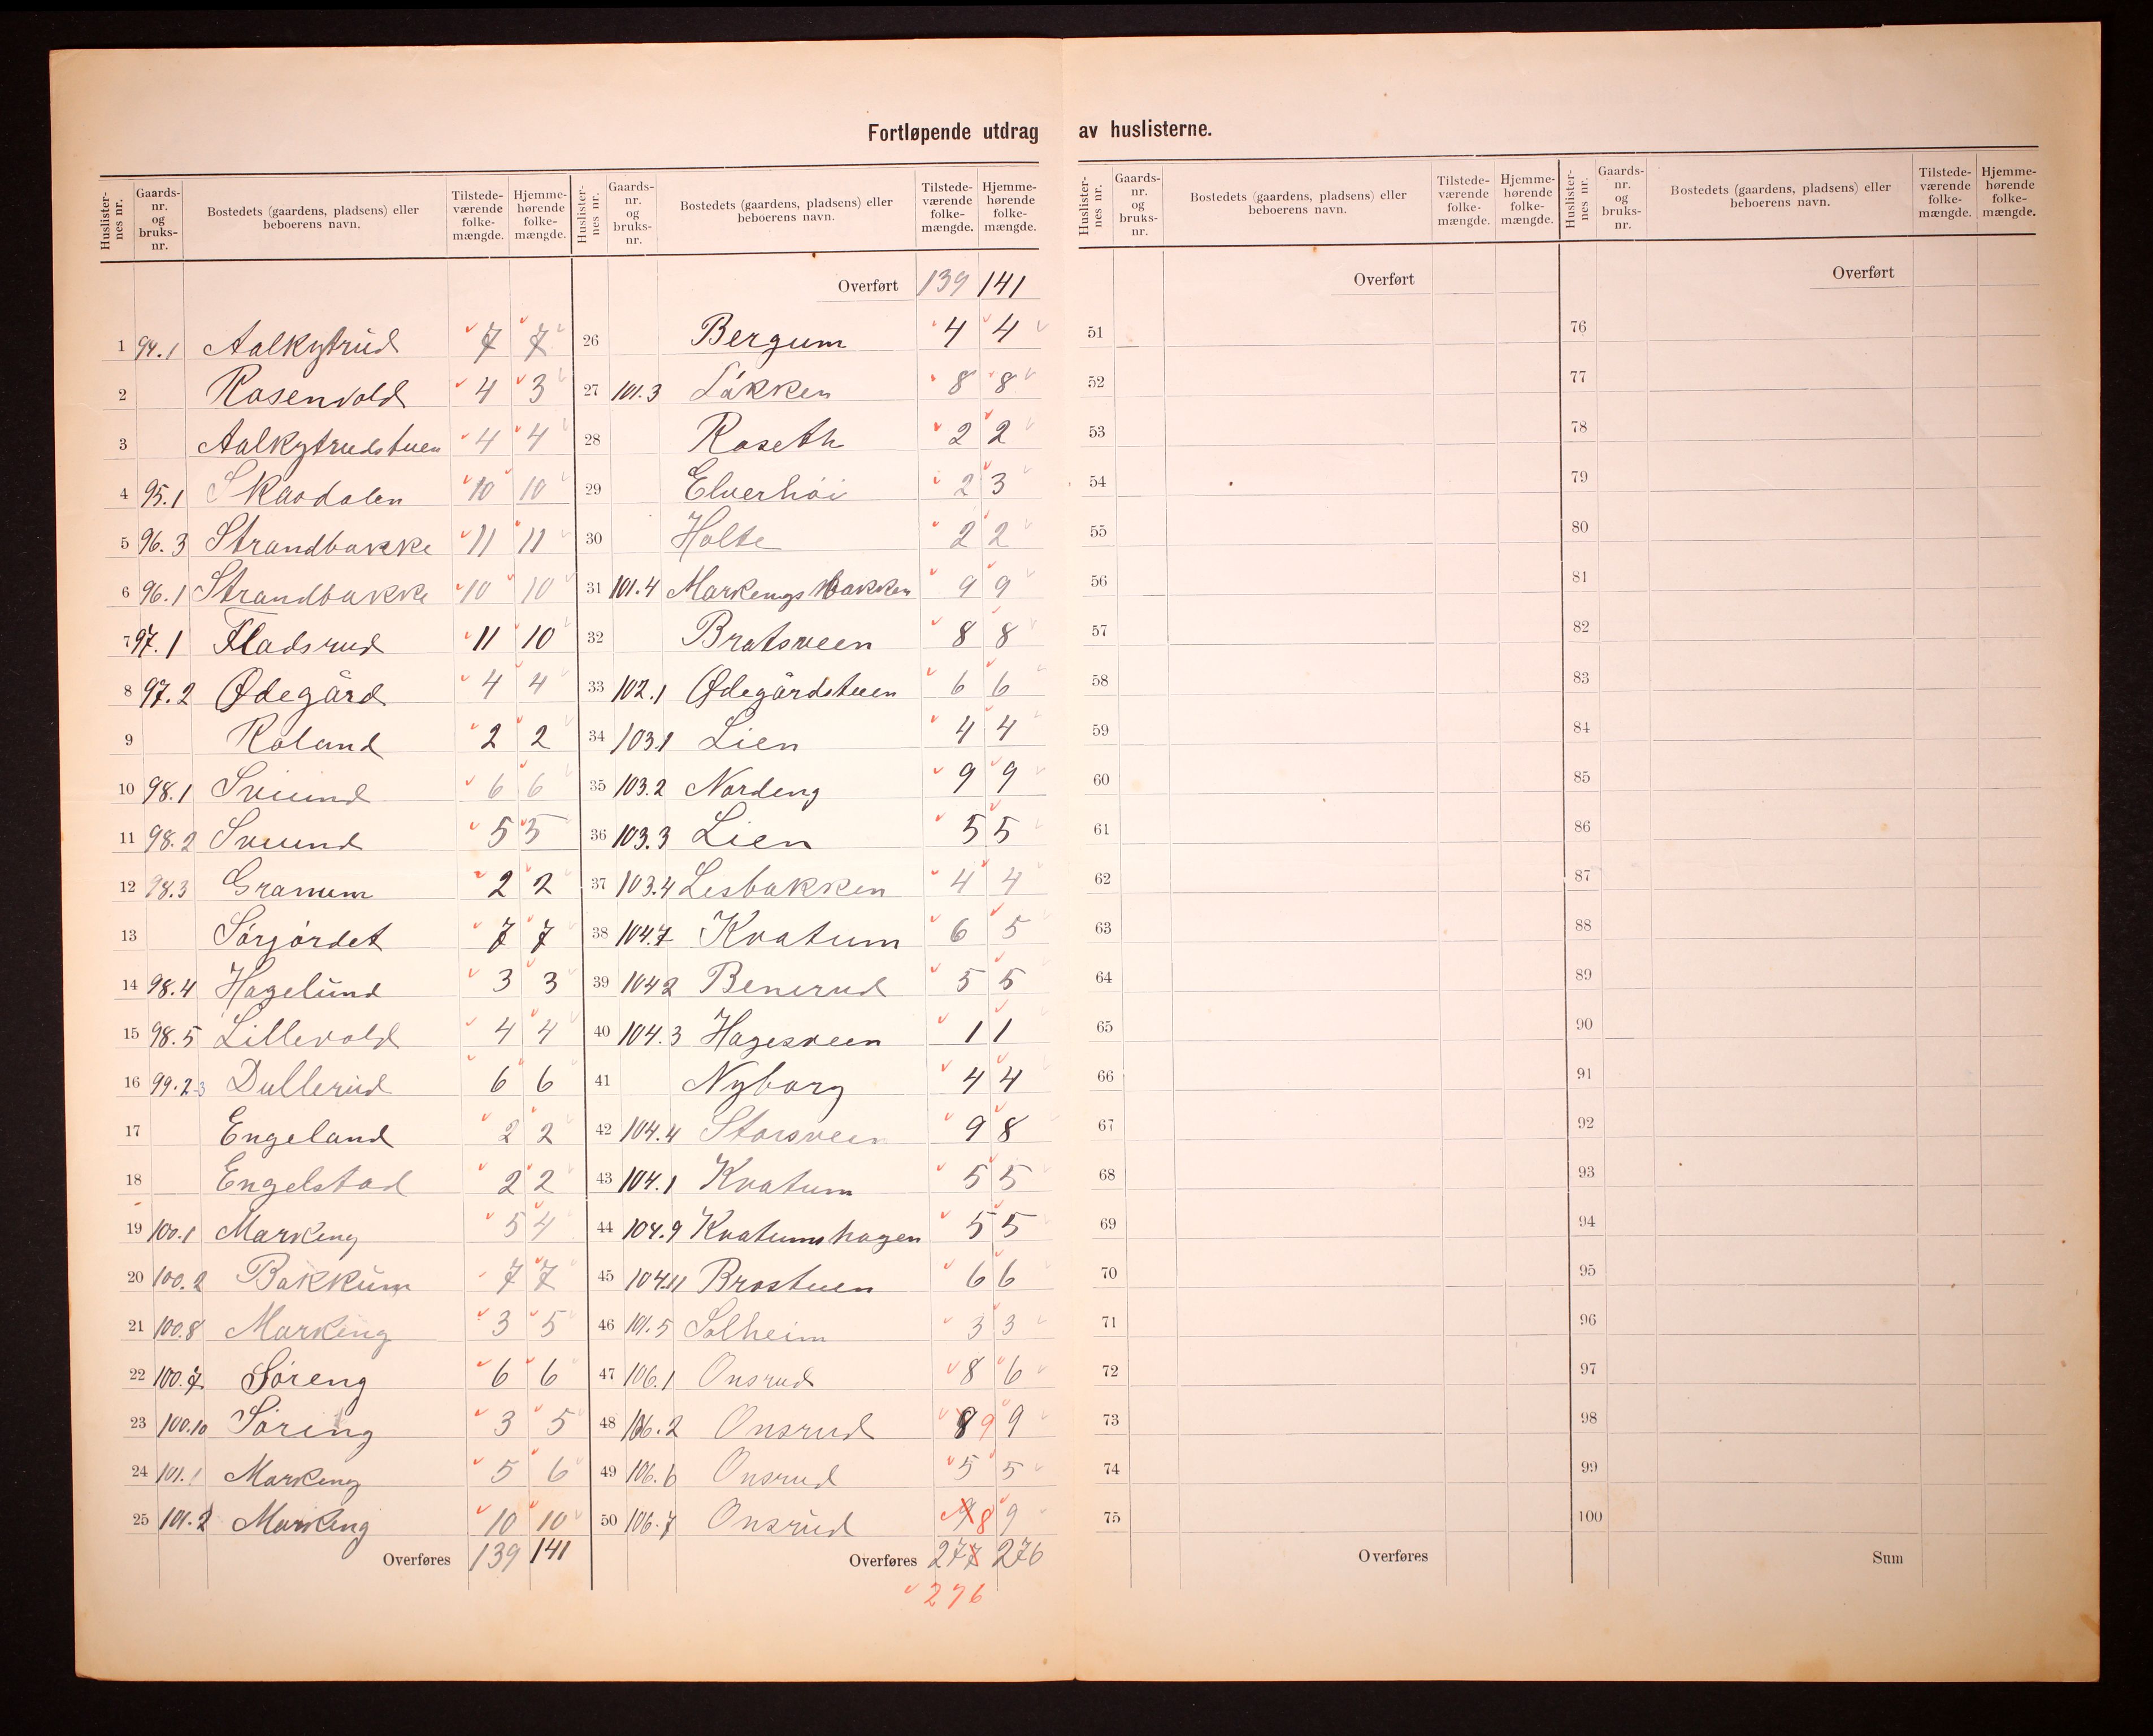 Fortløpende utdrag av huslisterne.
Huslisternes nr. Gaards-nr. og bruks-nr. Bostedets (gaardens, pladsens) eller beboerens navn. Tilstede-værende folke-mængde. Hjemme-hørende folke-mængde.
1 94.1 Aalkytrud 7 7
2 Rosenvold 4 3
3 Aalkytrudstuen 4 4
4 95.1 Skavdalen 10 10
5 96.3 Strandbakke 11 11
6 96.1 Strandbakke 10 10
7 97.1 Fladsrud 11 10
8 97.2 Ødegård 4 4
9 Roland 2 2
10 98.1 Sviund 6 6
11 98.2 Sviund 5 5
12 98.3 Granum 2 2
13 Sørjordet 7 7
14 98.4 Hagelund 3 3
15 98.5 Lillevold 4 4
16 99.2-3 Dullerud 6 6
17 Engeland 2 2
18 Engelstad 2 2
19 100.1 Markeng 5 4
20 100.2 Bakkum 7 7
21 100.8 Markeng 3 5
22 100.7 Søreng 6 6
23 100.10 Søring 3 5
24 101.1 Markeng 5 6
25 101.2 Markeng 10 10
Overføres 139 141
Huslisternes nr. Gaards-nr. og bruks-nr. Bostedets (gaardens, pladsens) eller beboerens navn. Tilstede-værende folke-mængde. Hjemme-hørende folke-mængde.
Overført 139 141
26 Bergum 4 4
27 101.3 Løkken 8 8
28 Roseth 2 2
29 Elverhøi 2 3
30 Holte 2 2
31 101.4 Markengsbakken 9 9
32 Bratsveen 8 8
33 102.1 Ødegårdstuen 6 6
34 103.1 Lien 4 4
35 103.2 Nordeng 9 9
36 103.3 Lien 5 5
37 103.4 Lesbakken 4 4
38 104.7 Kvatum 6 5
39 104.2 Benerud 5 5
40 104.3 Hagesveen 1 1
41 Nyborg 4 4
42 104.4 Storsveen 9 8
43 104.1 Kvatum 5 5
44 104.9 Kvatumshagen 5 5
45 104.11 Brostuen 6 6
46 101.5 Solheim 3 3
47 106.1 Onsrud 8 6
48 106.2 Onsrud 8 9 9
49 106.6 Onsrud 5 5
50 106.7 Onsrud 9 8 9
Overføres 277 276
276
Huslisternes nr. Gaards-nr. og bruks-nr. Bostedets (gaardens, pladsens) eller beboerens navn. Tilstede-værende folke-mængde. Hjemme-hørende folke-mængde.
Overført
51
52
53
54
55
56
57
58
59
60
61
62
63
64
65
66
67
68
69
70
71
72
73
74
75
Overføres
Huslisternes nr. Gaards-nr. og bruks-nr. Bostedets (gaardens, pladsens) eller beboerens navn. Tilstede-værende folke-mængde. Hjemme-hørende folke-mængde.
Overført
76
77
78
79
80
81
82
83
84
85
86
87
88
89
90
91
92
93
94
95
96
97
98
99
100
Sum